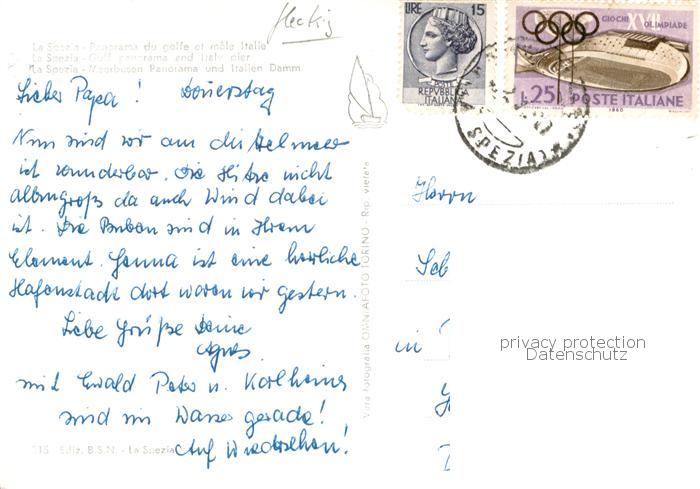 Hectig
La Spezia - Panorama du golfe et môle Italie
La Spezia - Gulf panorama and Italy pier
La Spezia - Meerbusen Panorama und Italien Damm
Lieber Papa! Donnerstag
Nun sind wir am Mittelmeer
ist wunderbar. Die Hitze nicht
allzugroß da auch Wind dabei
ist. Die Buben sind in Ihrem
Element. Genua ist eine herrliche
Hafenstadt dort waren wir gestern.
Liebe Grüße Deine
Agnes.
mit Ewald Peter u. Karlheinz
sind im Wasser gerade!
Auf Wiedersehen!
115 Ediz. B.S.N. - La Spezia
Vera fotografia OMNIAFOTO TORINO - Rip. vietata
LIRE 15
REPVBBLICA
ITALIANA
GIOCHI XVII OLIMPIADE
L.25 POSTE ITALIANE
1960
SPEZIA
Herrn
in
privacy protection
Datenschutz